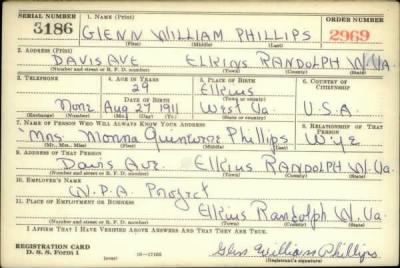 SERIAL NUMBER 1. Name (Print) ORDER NUMBER
3186 GLENN WILLIAM PHILLIPS 2969
(First) (Middle) (Last)
2. Address (Print)
DAVIS AVE ELKINS RANDOLPH W.VA.
(Number and street or R. F. D. number) (Town) (County) (State)
3. Telephone 4. Age in Years 5. Place of Birth 6. Country of Citizenship
29 Elkins
Date of Birth (Town or county)
None Aug 27 1911 West Va U.S.A.
(Exchange) (Number) (Mo.) (Day) (Yr.) (State or country)
7. Name of Person Who Will Always Know Your Address 8. Relationship of That Person
Mrs Monna Phillips Wife
(Mr., Mrs., Miss) (First) (Middle) (Last)
9. Address of That Person
Davis Ave. Elkins RANDOLPH W.Va.
(Number and street or R. F. D. number) (Town) (County) (State)
10. Employer's Name
W.P.A Project
11. Place of Employment or Business
Elkins Randolph W.Va.
(Number and street or R. F. D. number) (Town) (County) (State)
I Affirm That I Have Verified Above Answers and That They Are True.
Registration Card
D. S. S. Form 1 (over) 16—17105 Glenn William Phillips
(Registrant's signature)